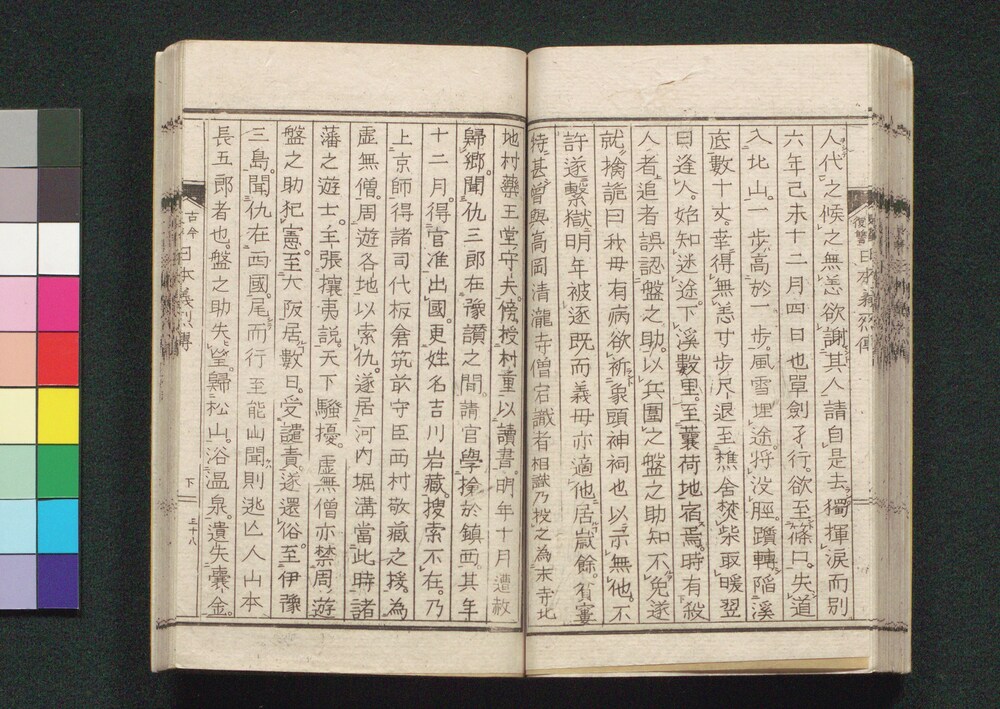 人代之候之無恙欲謝其人請自是去獨揮涙而別
六年己未十二月四日也單劍孑行欲至篠口失道
入北山一步高於一步風雪埋途將沒脛躓轉陷溪
底數十丈幸得無恙寸步尺退至樵舍焚柴取暖翌
日逢人始知迷途下溪數里至蘘荷地宿焉時有殺
人者追者誤認盤之助以兵圍之盤之助知不免遂
就擒詭曰我母有病欲祈象頭神祠也以示無他不
許遂繫獄明年被逐既而義母亦適他居歲餘貧窶
特甚曾與高岡清瀧寺僧宕識者相謀乃投之為末寺北
地村藥王堂守夫傍授村童以讀書明年十月遭赦
歸鄉聞仇三郎在豫讚之間請官學搶於鎮西其年
十二月得官准出國更姓名吉川岩藏搜索不在乃
上京師得諸司代板倉筑前守臣西村敬藏之援為
虛無僧周遊各地以索仇遂居河内堀溝當此時諸
藩之遊士主張攘夷説天下騷擾虛無僧亦禁周遊
盤之助犯憲至大阪居數日受譴責遂還俗至伊豫
三島聞仇在西國尾而行至能山聞則逃亡人山本
長五郎者也盤之助失望歸松山浴溫泉遺失橐金
古今
日本義烈傳
下
三十八
復讐
日本義烈傳